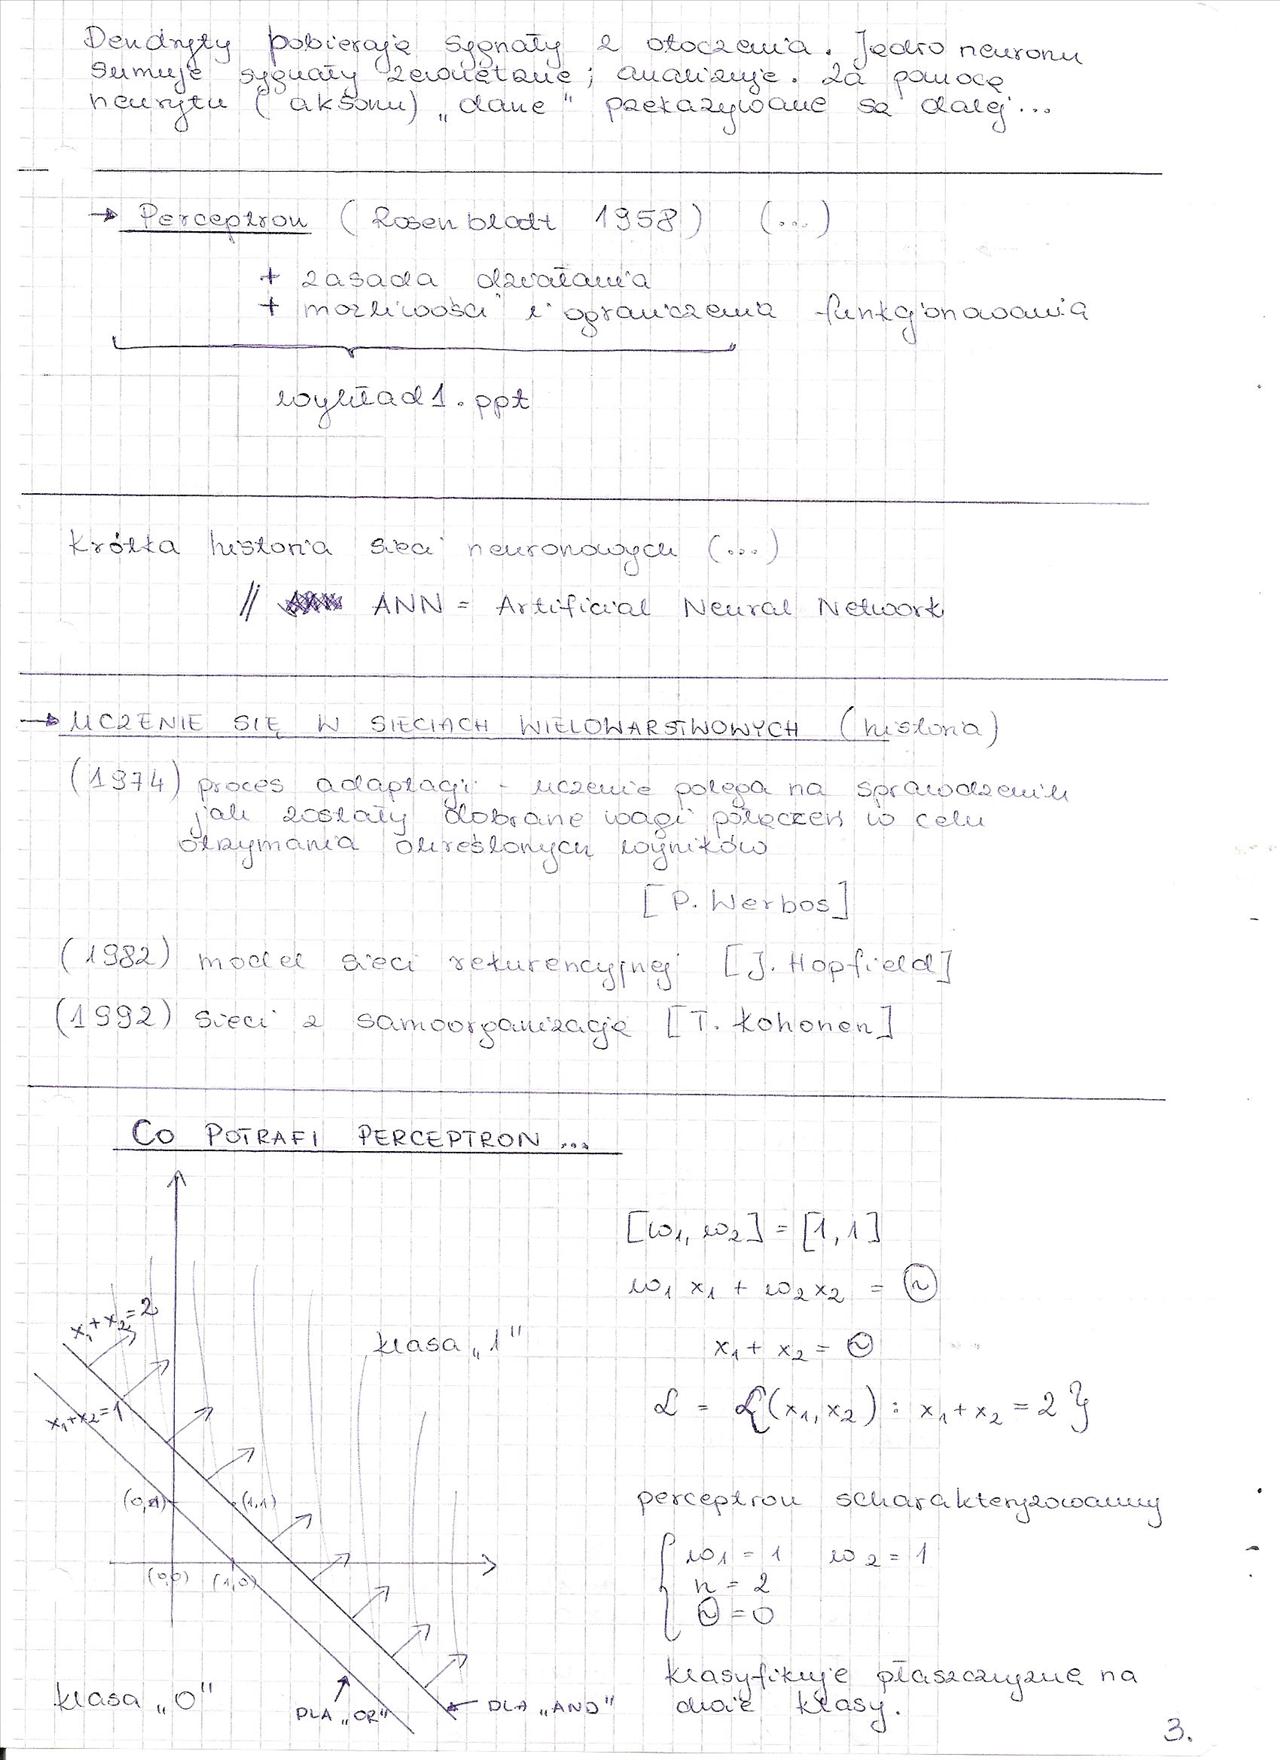 Dendryty pobierają sygnały z otoczenia. Jądro neuronu
sumuje sygnały zewnętrzne; analizuje. Za pomocą
neurytu (aksonu) „dane" przekazywane są dalej...
→ Perceptron (Rosenblatt 1958) (...)
+ zasada działania
+ możliwości i ograniczenia funkcjonowania
wykład1.ppt
Krótka historia sieci neuronowych (...)
// ANN = Artificial Neural Network
→ UCZENIE SIĘ W SIECIACH WIELOWARSTWOWYCH (historia)
(1974) proces adaptacji - uczenie polega na sprawdzeniu
jak zostały dobrane wagi połączeń w celu
otrzymania określonych wyników
[P. Werbos]
(1982) model sieci rekurencyjnej [J. Hopfield]
(1992) sieci z samoorganizacją [T. Kohonen]
CO POTRAFI PERCEPTRON...
[w₁, w₂] = [1, 1]
w₁ x₁ + w₂ x₂ = Θ
x₁ + x₂ = Θ
L = {(x₁, x₂) : x₁ + x₂ = 2}
x₁+x₂=2
klasa „1"
x₁+x₂=1
(0,1)
(1,1)
(0,0)
(1,0)
perceptron scharakteryzowany
w₁ = 1 w₂ = 1
n = 2
Θ = 0
klasyfikuje płaszczyznę na
dwie klasy.
klasa „0"
DLA „OR"
DLA „AND"
3.